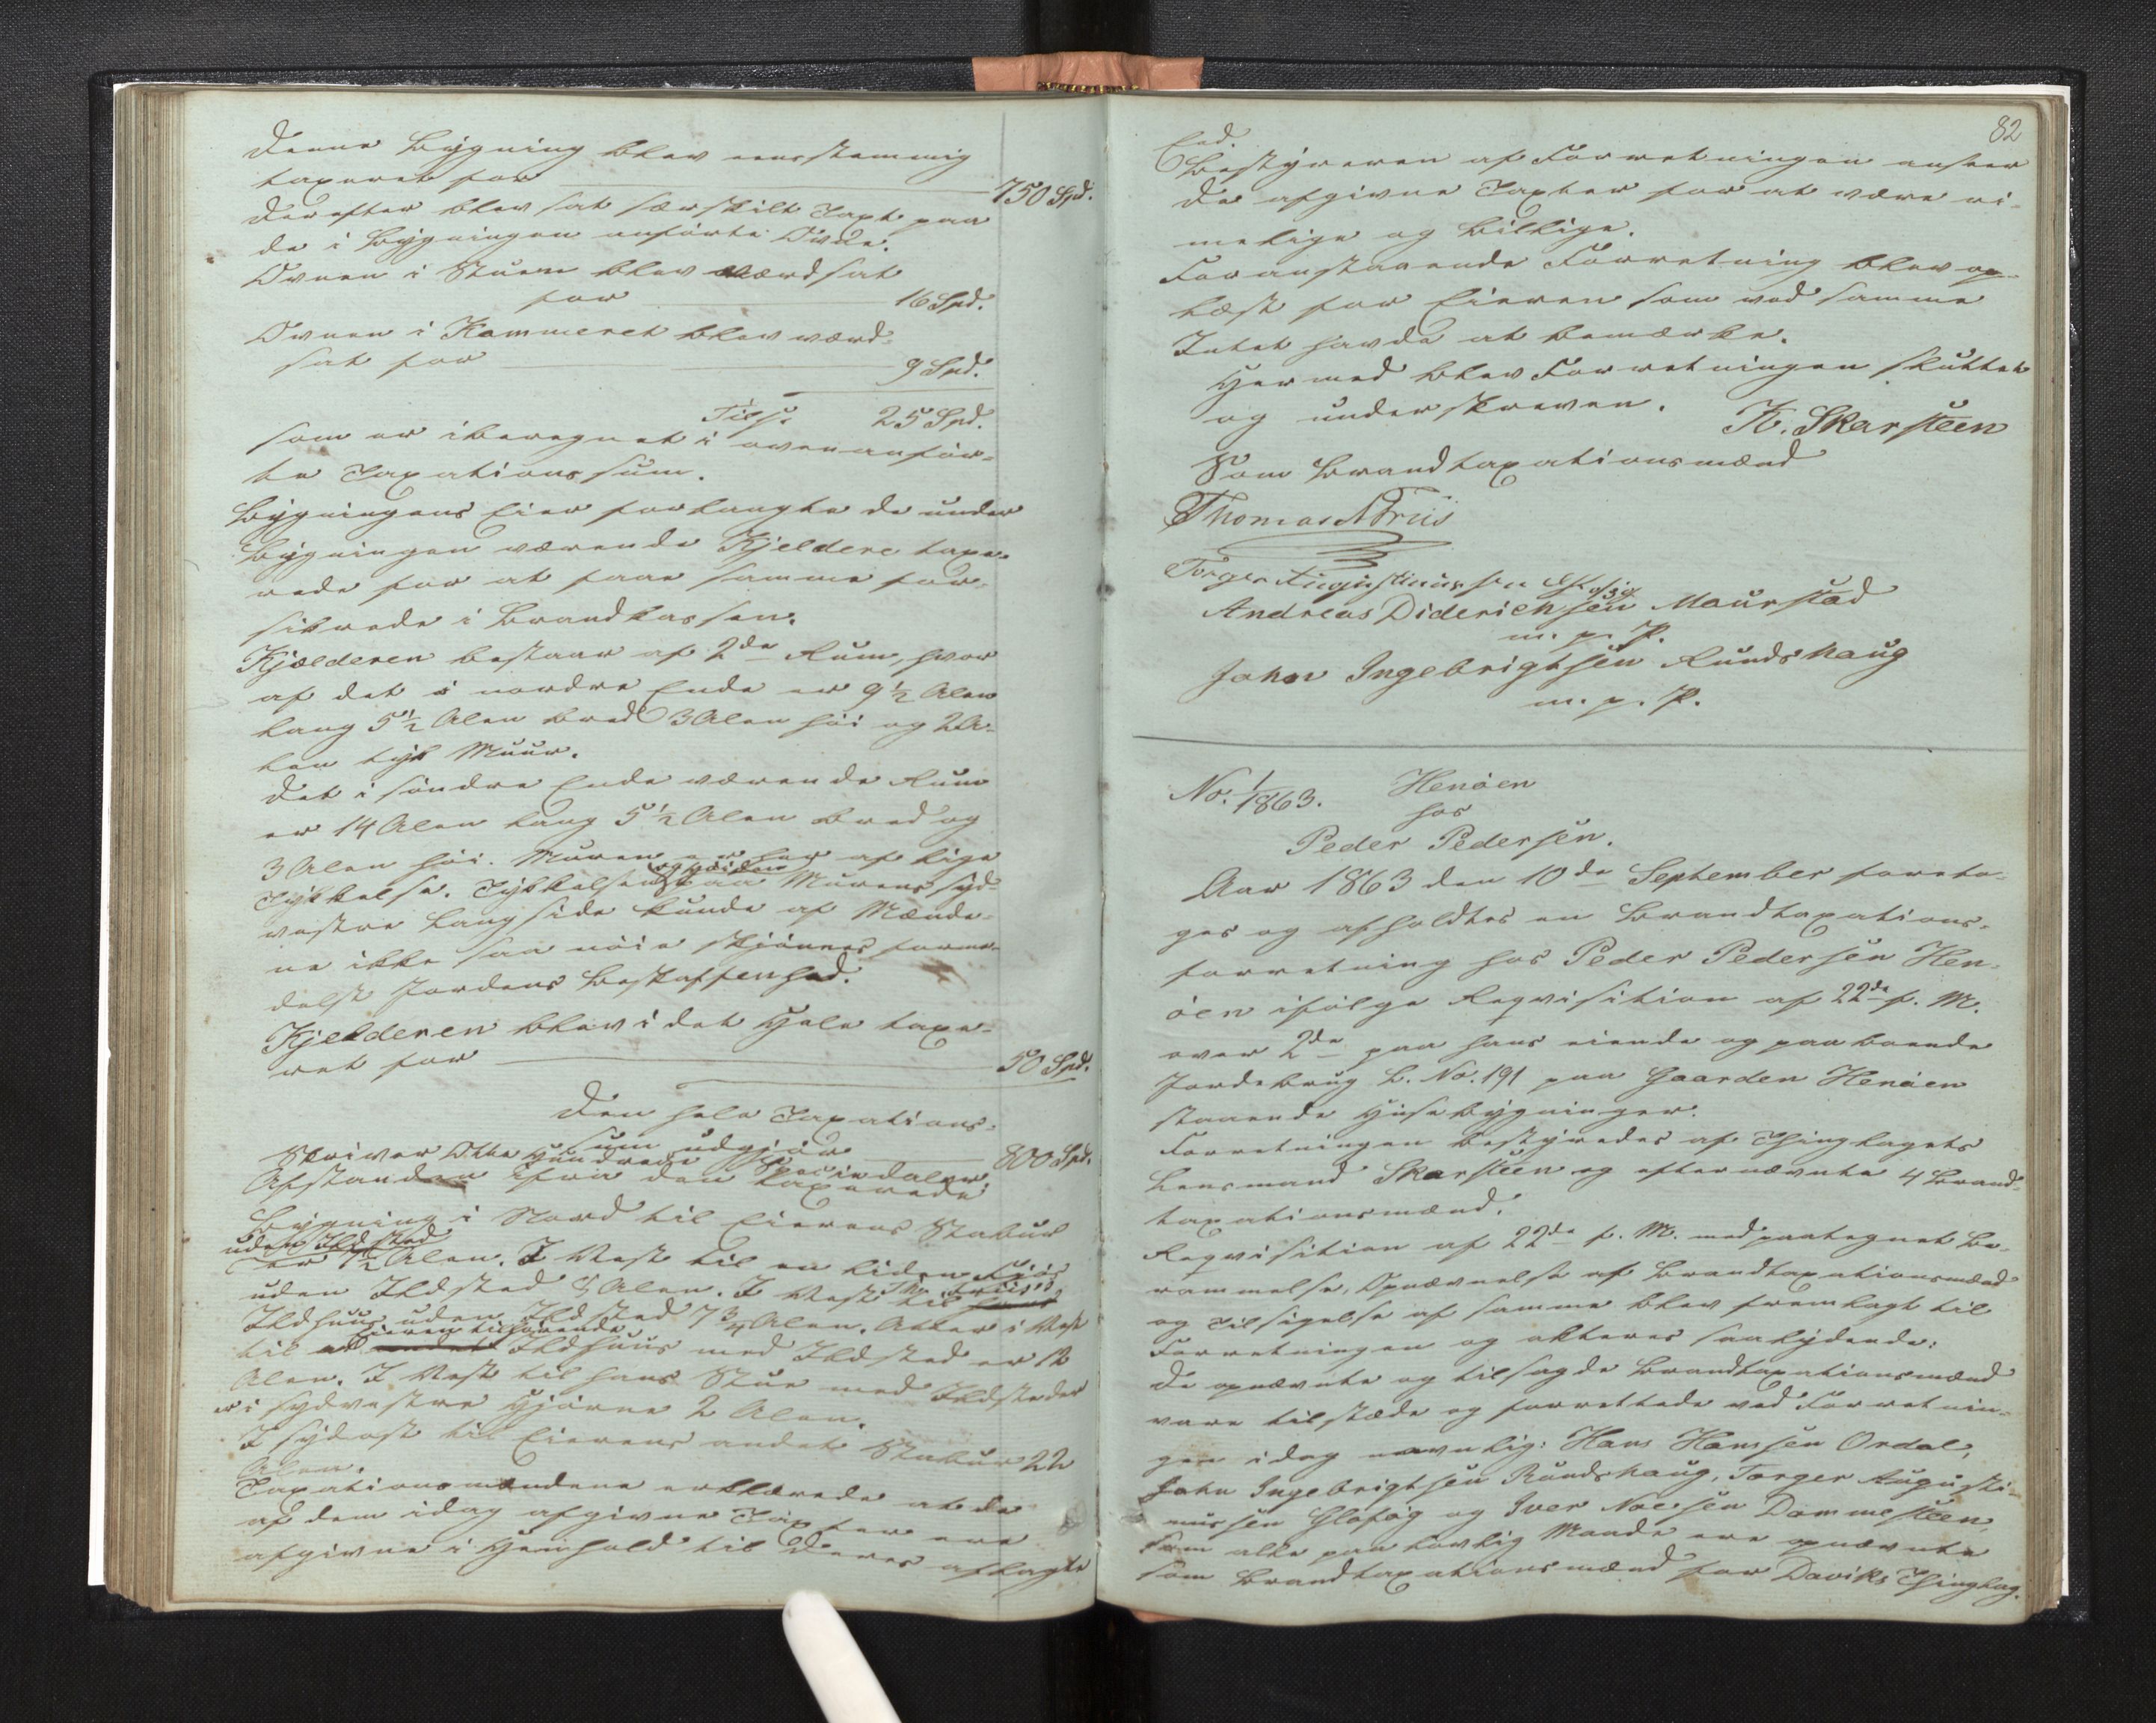 Denne Bygning blev eensstemmig
taxeret for 750 Spd.
Derefter blev sat særskilt Taxt paa
de i Bygningen anførte Ovne.
Ovnen i Stuen blev værdsat
for 16 Spd.
Ovnen i Kammeret blev værd-
sat for 9 Spd.
Tils. 25 Spd.
som er iberegnet i ovenanfør-
te Taxationssum.
Bygningens Eier forlangte de under
Bygningen værende Kjeldere taxe-
rede for at faae samme for-
sikrede i Brandkassen.
Kjælderen bestaar af 2de Rum, hvor
af det i nordre Ende er 9½ Alen
lang 5½ Alen bred 3 Alen høi og 2 A-
len tyk Muur.
Det i søndre Ende værende Rum
er 14 Alen lang 5½ Alen bred og
3 Alen høi. Muren er her af lige
Tykkelse. Tykkelsen og Høiden paa Murens syd-
vestre Langside kunde af Mænde-
ne ikke saa nøie skjønnes forme-
delst Jordens Beskaffenhed.
Kjelderen blev i det Hele taxe-
ret for 50 Spd.
Den hele Taxations-
sum udgjør 800 Spd.
Skriver Otte Hundrede Speciedaler.
Afstanden ifra den taxerede
Bygning i Nord til Eierens Stabur
uden Ildsted
er 1½ Alen. I Vest til en liden Fjøs
uden Ildsted 4 Alen. I Vest til Th. Friis's
Ildhuus uden Ildsted 7¾ Alen. Atter i Vest
til et Eieren tilhørende Ildhuus med Ildsted er 12
Alen. I Vest til hans Stue med Ildsteder
er i sydvestre Hjørne 2 Alen.
I Sydost til Eierens andet Stabur 22
Alen.
Taxationsmændene erklærede at de
af dem idag afgivne Taxter ere
afgivne i Henhold til deres aflagte
82
Eed.
Bestyreren af Forretningen anseer
de afgivne Taxter for at være ri-
melige og billige.
Foranstaaende Forretning blev op-
læst for Eieren som ved samme
Intet havde at bemærke.
Hermed blev Forretningen sluttet
og underskreven.
K. Skarsteen
Som Brandtaxationsmænd
Thomas A Friis
Torger Augustinussen
Andreas Diderichsen Maurstad
m. p. P.
John Ingebrigtsen Rundshaug
m. p. P.
No. 1/1863. Henøen
hos
Peder Pedersen.
Aar 1863 den 10de September foreto-
ges og afholdtes en Brandtaxations-
forretning hos Peder Pedersen Hen-
øen ifølge Reqvisition af 22de f. M.
over 2de paa hans eiende og paaboende
Jordebrug L. No. 191 paa Gaarden Henøen
staaende Husebygninger.
Forretningen bestyredes af Thinglagets
Lensmand Skarsteen og efternævnte 4 Brand-
taxationsmænd.
Reqvisition af 22de f. M. med paategnet Be-
rammelse, Opnævnelse af Brandtaxationsmænd
og Tilsigelse af samme blev fremlagt til
Forretningen og akteres saalydende:
De opnævnte og tilsagde Brandtaxationsmænd
vare tilstæde og forrettede ved Forretnin-
gen idag navnlig: Hans Hanssen Ordal,
John Ingebrigtsen Rundshaug, Torger Augusti-
nussen Gloføg og Iver Noesen Dommesteen,
som alle paa lovlig Maade ere opnævnte
som Brandtaxationsmænd for Daviks Thinglag.